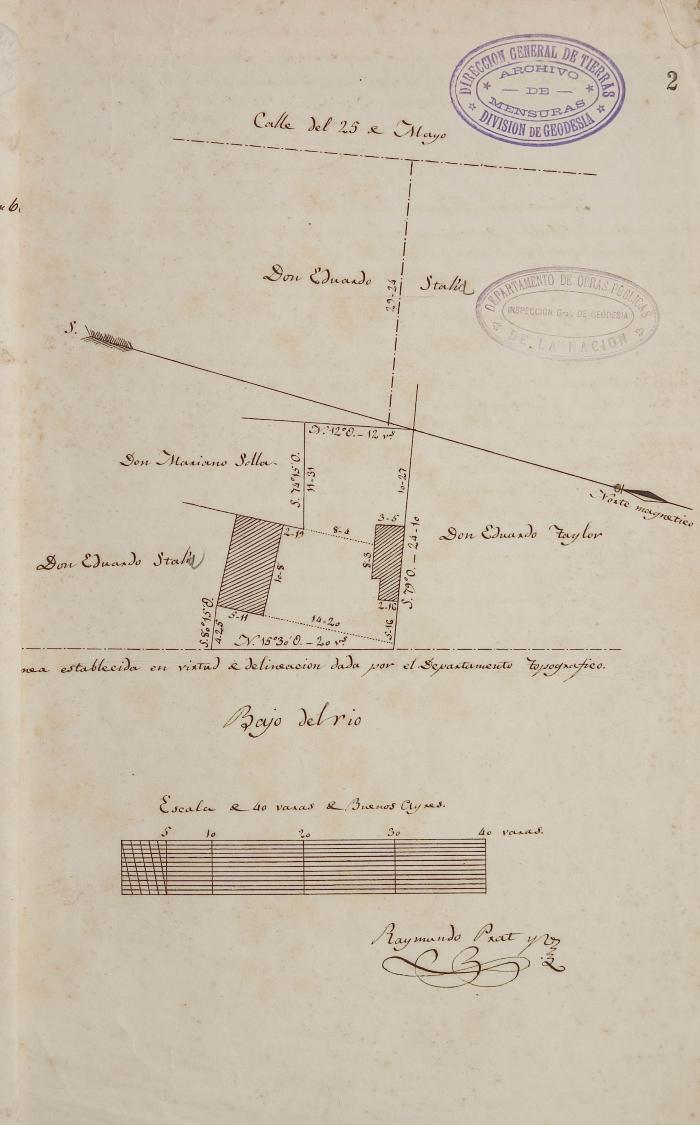 DIRECCION GENERAL DE TIERRAS
ARCHIVO
DE
MENSURAS
DIVISION DE GEODESIA
2
Calle del 25 de Mayo
Don Eduardo
29-24
DEPARTAMENTO DE OBRAS PUBLICAS
INSPECCION Gral. DE GEODESIA
DE LA NACION
S.
N. 12° O. - 12 vs
Don Mariano Solla
S. 74°15' O.
11-31
10-27
Norte magnetico
2-19
8-4
3-5
Don Eduardo Taylor
Don Eduardo
10-8
8-3
S. 79° O. - 24-10
S. 80°15' O.
4-25
5-11
14-20
2-16
5-16
N. 15°30' O. - 20 vs
nea establecida en virtud de delineacion dada por el Departamento topografico.
Bajo del rio
Escala de 40 varas de Buenos Ayres.
5 10 20 30 40 varas.
Raymundo Prat y